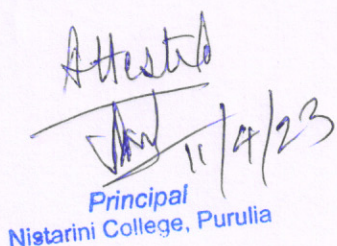 Attested
11/4/23
Principal
Nistarini College, Purulia